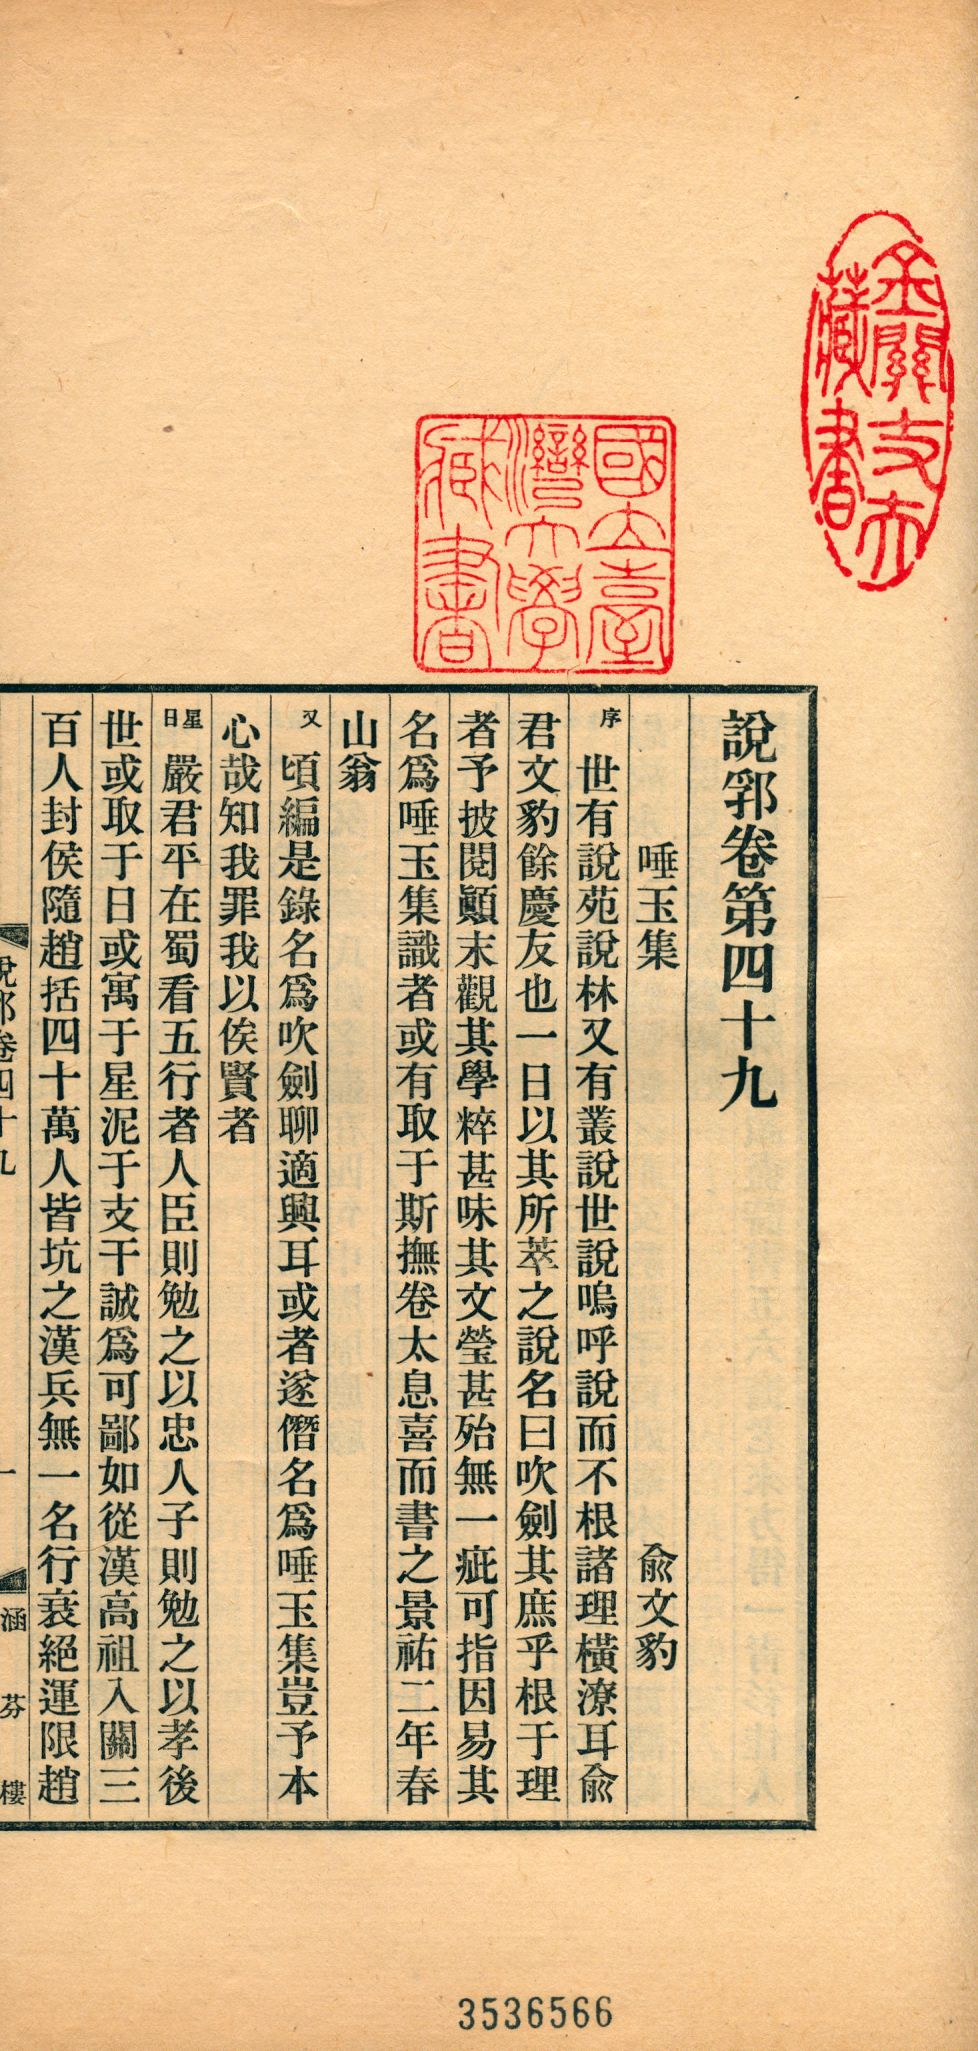 說郛卷第四十九
唾玉集 俞文豹
序 世有說苑說林又有叢說世說嗚呼說而不根諸理橫潦耳俞
君文豹餘慶友也一日以其所萃之說名曰吹劍其庶乎根于理
者予披閱顚末觀其學粹甚味其文瑩甚殆無一疵可指因易其
名爲唾玉集識者或有取于斯撫卷太息喜而書之景祐二年春
山翁
又 頃編是錄名爲吹劍聊適興耳或者遂僭名爲唾玉集豈予本
心哉知我罪我以俟賢者
星日 嚴君平在蜀看五行者人臣則勉之以忠人子則勉之以孝後
世或取于日或寓于星泥于支干誠爲可鄙如從漢高祖入關三
百人封侯隨趙括四十萬人皆坑之漢兵無一名行衰絕運限趙
說郛卷四十九 一 涵芬樓
國立臺灣大學藏書
金關丈夫藏書
3536566